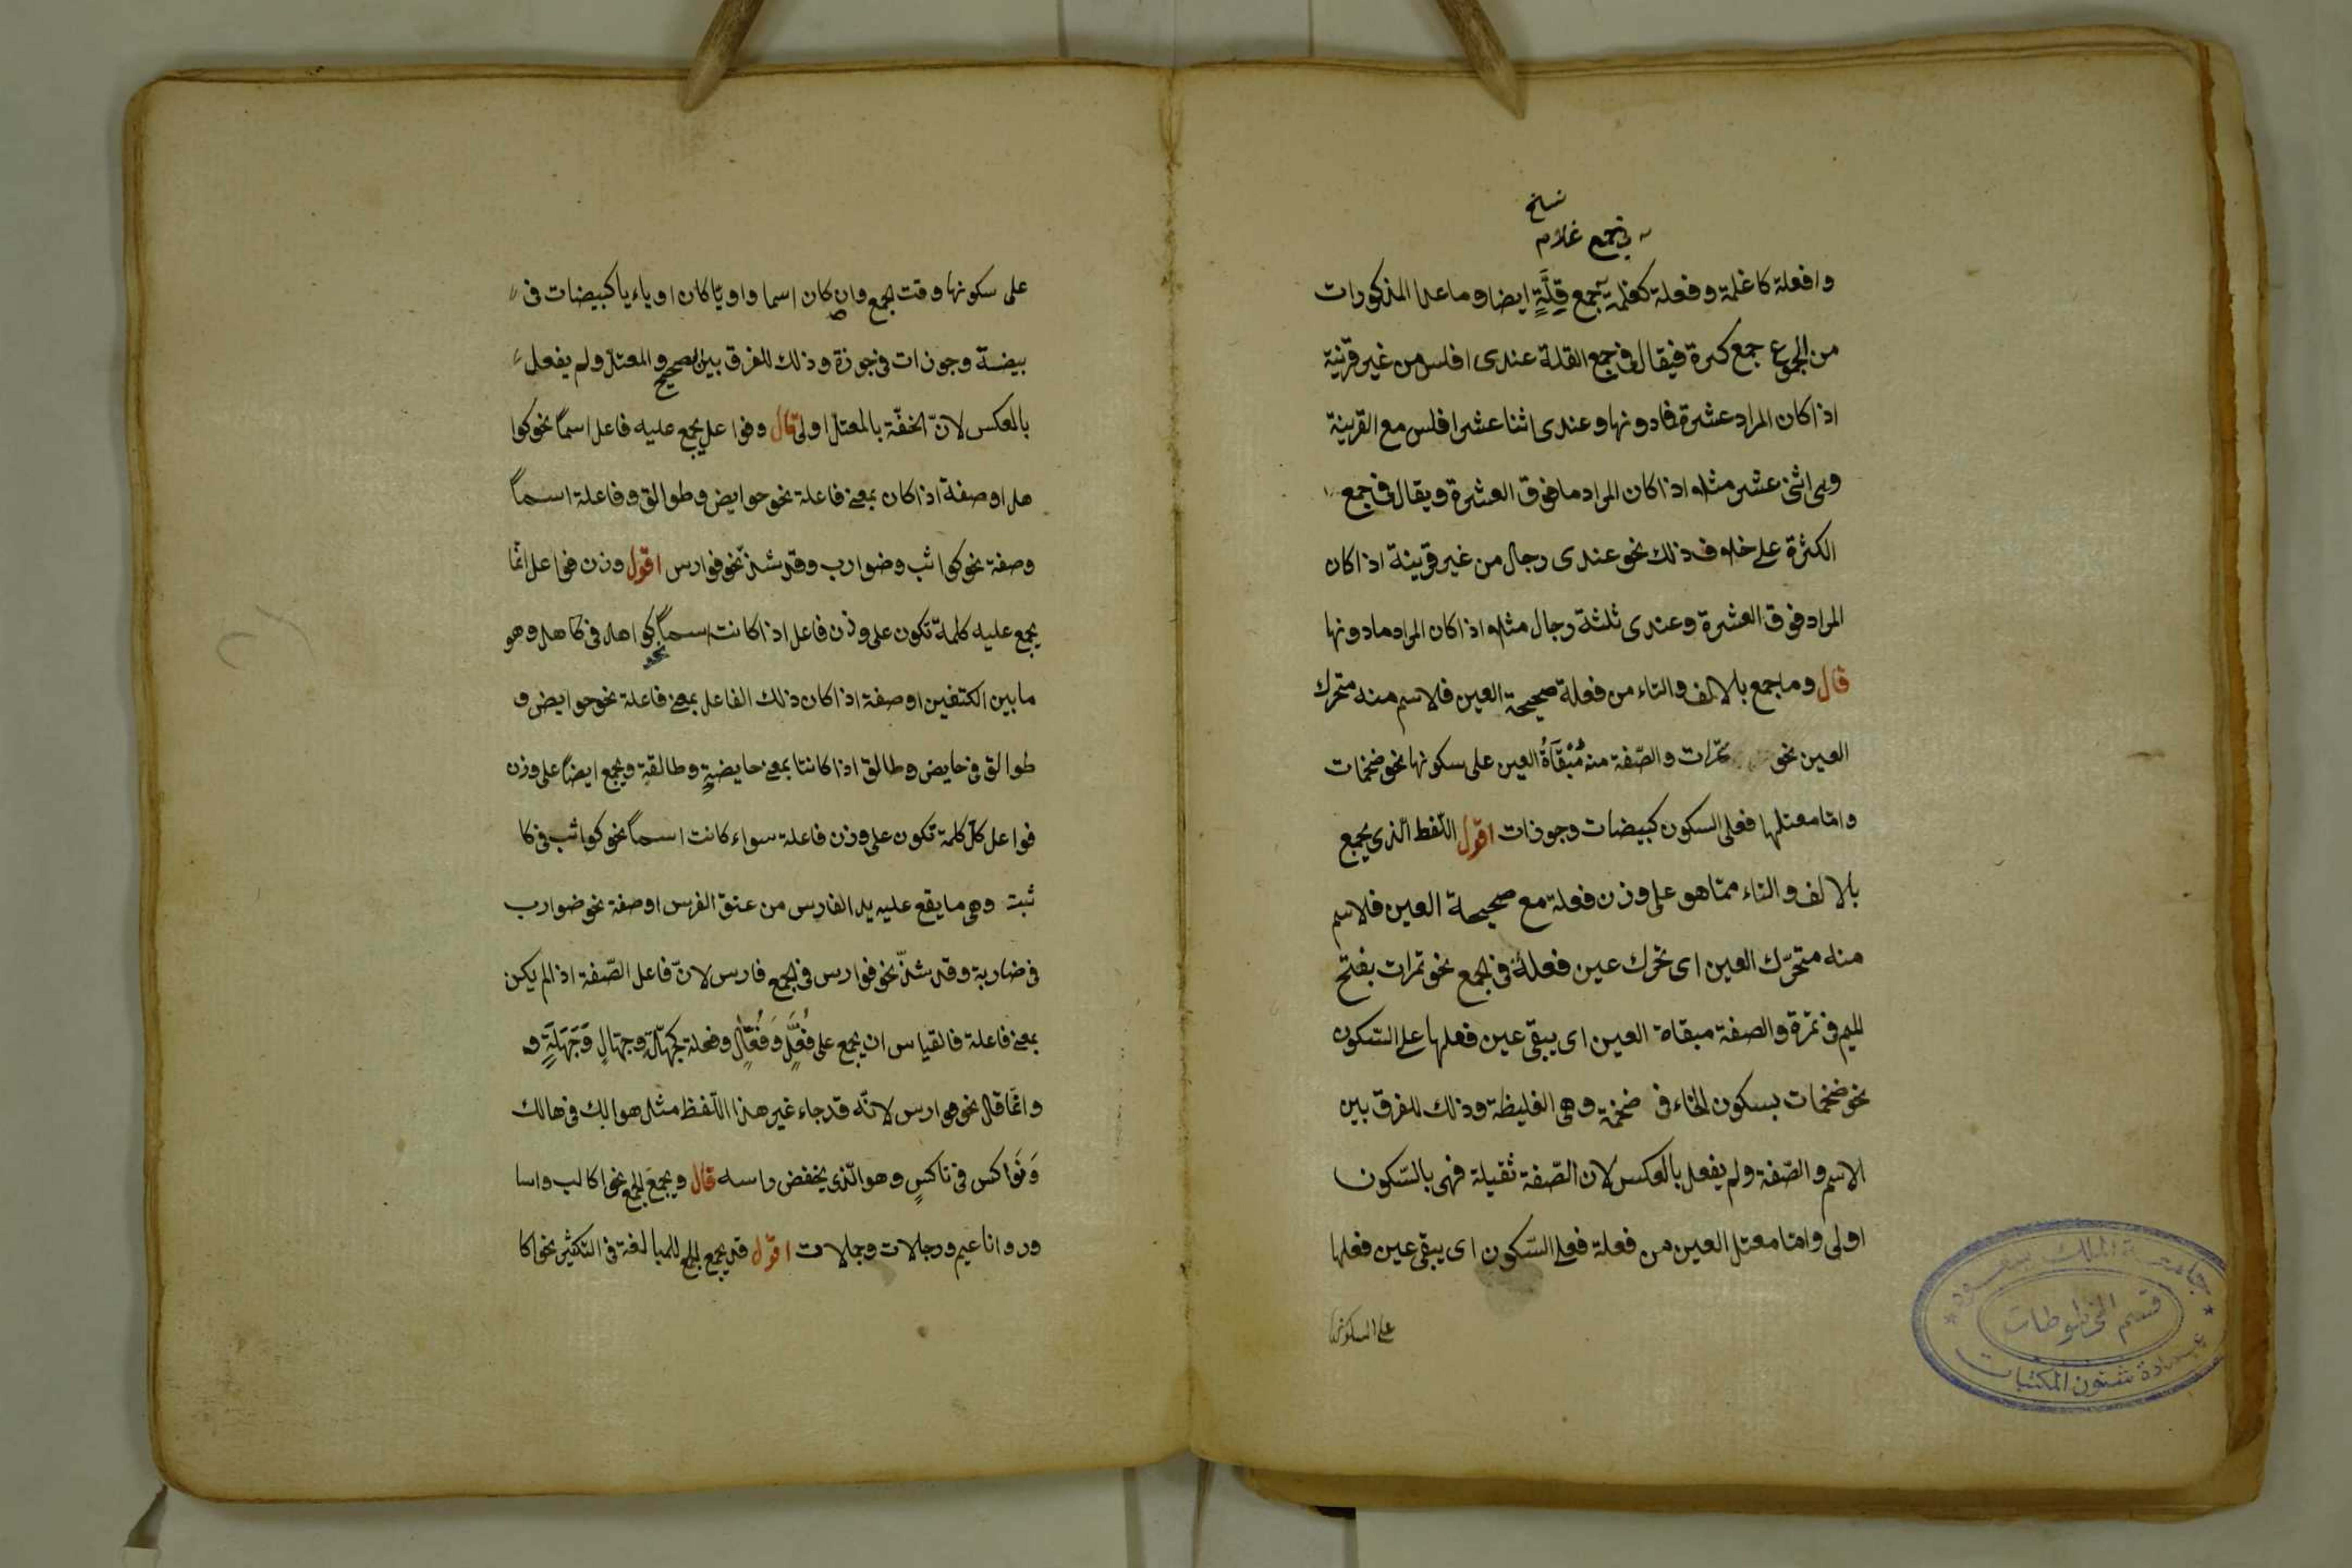 نسخ
في جمع غلام
وافعلة كاغلمة وفعلة كغلمة جمع قِلَّةٍ ايضا وما عدا المذكورات
من الجموع جمع كثرة فيقال في جمع القلة عندى افلس من غير قرينة
اذا كان المراد عشرة فما دونها وعندى اثنا عشر افلس مع القرينة
وهى اثنى عشر مثلا اذا كان المراد ما فوق العشرة ويقال في جمع
الكثرة على خلاف ذلك نحو عندى رجال من غير قرينة اذا كان
المراد فوق العشرة وعندى ثلثة رجال مثلا اذا كان المراد ما دونها
قال وما جمع بالالف والتاء من فعلة صحيحة العين فالاسم منه متحرك
العين نحو تمرات والصّفة منه مُبْقَاةُ العين على سكونها نحو ضخمات
وامّا معتلها فعلى السكون كبيضات وجوزات اقول اللّفظ الّذى يجمع
بالالف والتاء ممّا هو على وزن فعلة مع صحيحة العين فالاسم
منه متحرّك العين اى تحرك عين فعلة في الجمع نحو تمرات بفتح
الميم في تمرة والصفة مبقاة العين اى يبقى عين فعلها على السّكون
نحو ضخمات بسكون الخاء في ضخمة وهى الغليظة وذلك للفرق بين
الاسم والصّفة ولم يفعل بالعكس لان الصّفة ثقيلة فهى بالسّكون
اولى وامّا معتل العين من فعلة فعلى السّكون اى يبقى عين فعلها
على السكونها
على سكونها وقت الجمع وان كان اسما واويّا كان او ياءيا كبيضات في
بيضة وجوزات في جوزة وذلك للفرق بين الصحيح والمعتلّ ولم يفعل
بالعكس لانّ الخفّة بالمعتلّ اولى قال وفواعل يجمع عليه فاعل اسماً نحو كوا
هل او صفة اذا كان بمعنى فاعلة نحو حوايض وطوالق وفاعلة اسماً
وصفة نحو كواثب وضوارب وقد شذّ نحو فوارس اقول وزن فواعل انّما
يجمع عليه كلمة تكون على وزن فاعل اذا كانت اسماً نحو كواهل في كاهل وهو
ما بين الكتفين او صفة اذا كان ذلك الفاعل بمعنى فاعلة نحو حوايض و
طوالق في حايض وطالق اذا كانتا بمعنى حايضةٍ وطالقةٍ ويجمع ايضاً على وزن
فواعل كلّ كلمة تكون على وزن فاعلة سواء كانت اسماً نحو كواثب في كا
ثبة وهى ما يقع عليه يد الفارس من عنق الفرس او صفة نحو ضوارب
في ضاربة وقد شذّ نحو فوارس في جمع فارس لانّ فاعل الصّفة اذا لم يكن
بمعنى فاعلة فالقياس ان يجمع على فُعَّلٍ وَفُعَّالٍ وفعلة كجهّلٍ وجهّالٍ وَجَهَلَةٍ و
وانّما قال نحو فوارس لانّه قد جاء غير هذا اللّفظ مثل هوالك في هالك
وَنَوَاكس في ناكسٍ وهو الّذى يخفض راسه قال ويجمع الجمع نحو اكالب واسا
ور واناعيم ورجالات وجمالات اقول قد يجمع الجمع للمبالغة في التكثير نحو اكا
جامعة الملك سعود
قسم المخطوطات
عمادة شئون المكتبات